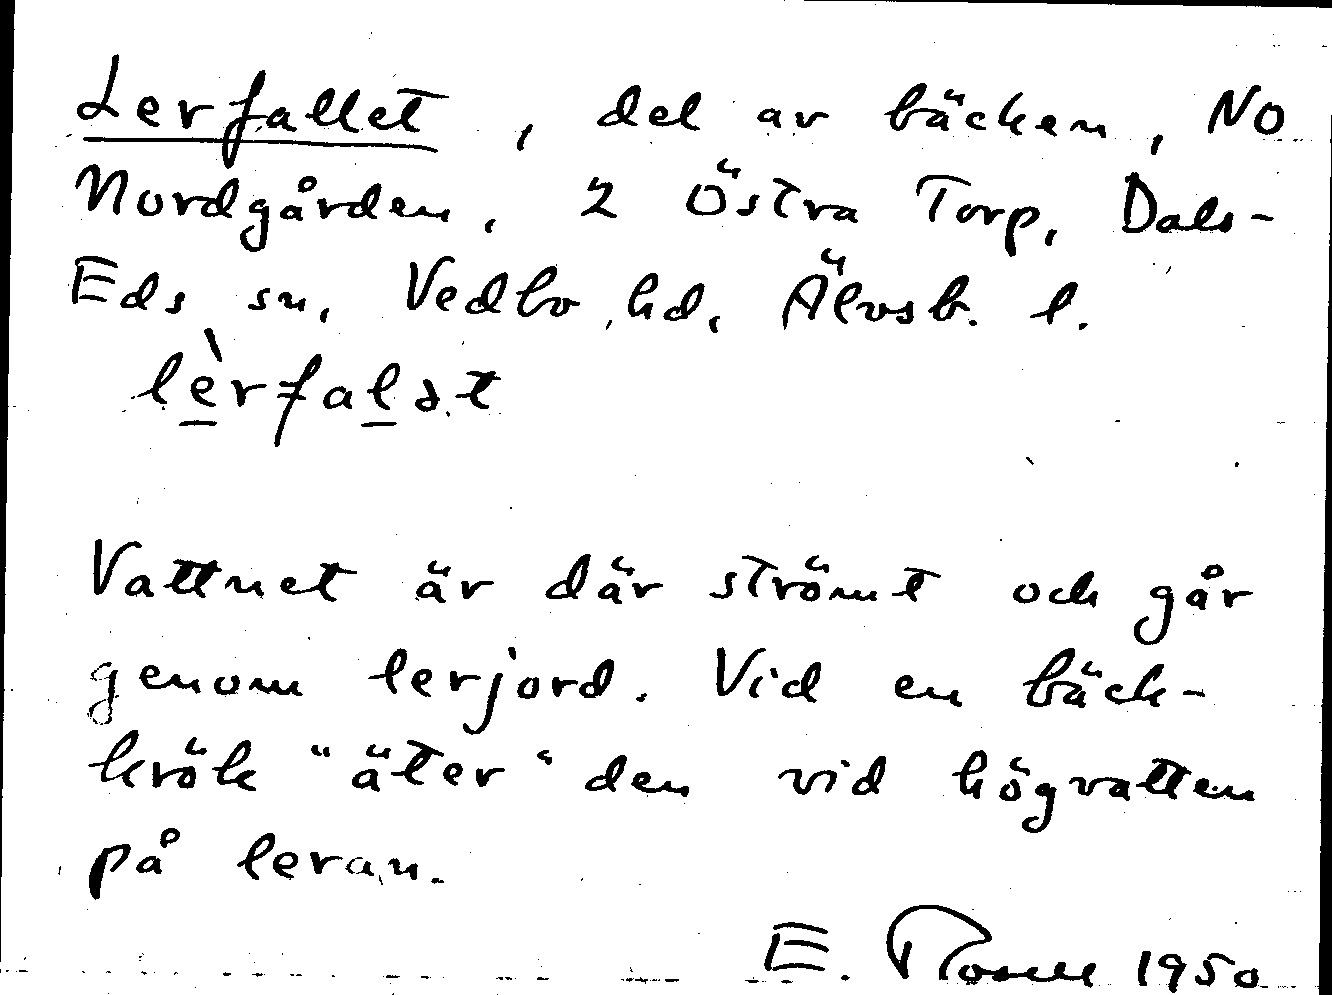 Lerfallet, del av bäcken, NO
Nordgården, 2 Östra Torp, Dals-
Eds sn, Vedbo hd, Älvsb. l.
lèrfalət
Vattnet är där strömt och går
genom lerjord. Vid en bäck-
krök "äter" den vid högvatten
på leran.
E. Rosell 1950